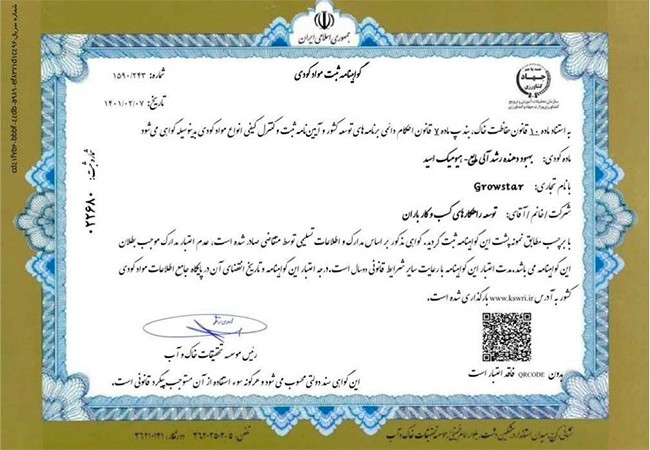 جمهوری اسلامی ایران
گواهینامه ثبت مواد کودی
شماره: ۱۵۹۰/۲۴۳
تاریخ: ۱۴۰۱/۰۲/۰۷
جهاد
کشاورزی
سازمان تحقیقات، آموزش و ترویج
شماره ثبت: ۰۲۲۶۸۰
به استناد ماده ۱۰ قانون حفاظت خاک، بند پ ماده ۷ قانون احکام دائمی برنامه های توسعه کشور و آیین نامه ثبت و کنترل کیفی انواع مواد کودی بدینوسیله گواهی می شود
ماده کودی: بهبود دهنده رشد آلی مایع- هیومیک اسید
با نام تجاری: Growstar
شرکت/خانم/آقای: توسعه راهکارهای کسب و کار باران
با برچسب مطابق نمونه پشت این گواهینامه ثبت گردید. گواهی مذکور بر اساس مدارک و اطلاعات تسلیمی توسط متقاضی صادر شده است، عدم اعتبار مدارک موجب بطلان
این گواهینامه می باشد. مدت اعتبار این گواهینامه با رعایت سایر شرایط قانونی دو سال است. درجه اعتبار این گواهینامه و تاریخ انقضای آن در پایگاه جامع اطلاعات مواد کودی
کشور به آدرس www.kswri.ir بارگذاری شده است.
رئیس موسسه تحقیقات خاک و آب
بدون QRCODE فاقد اعتبار است
این گواهی سند دولتی محسوب می شود و هرگونه سوء استفاده از آن مستوجب پیگرد قانونی است.